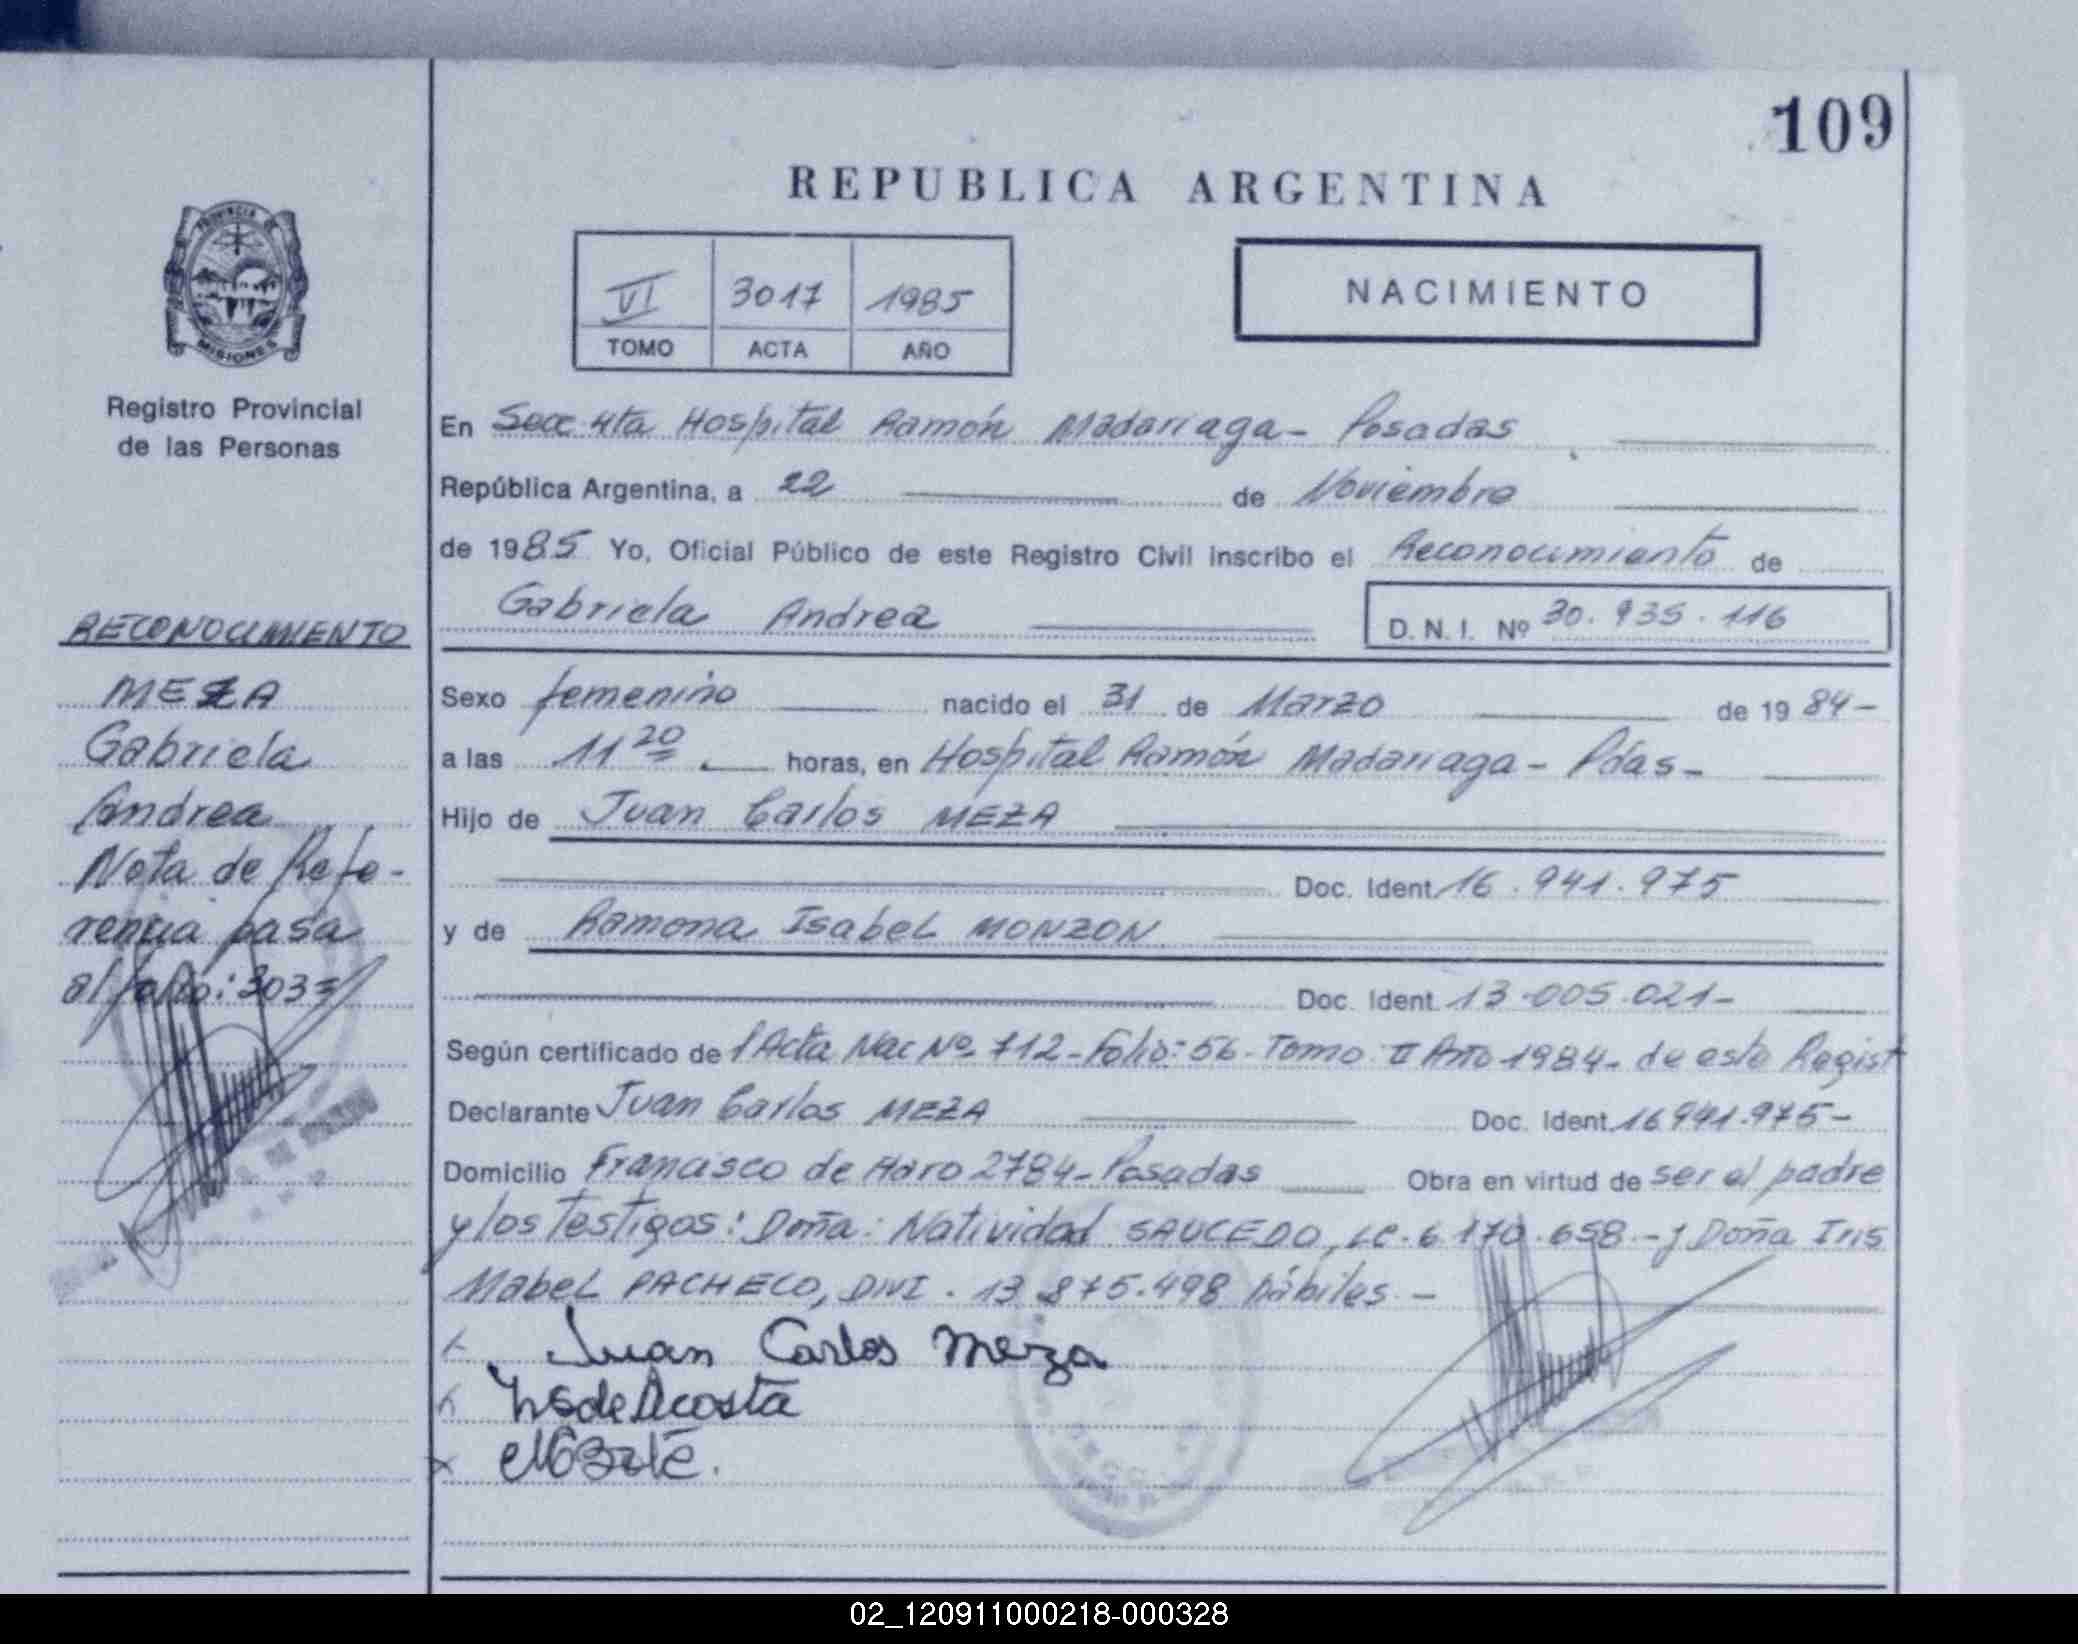 109
REPUBLICA ARGENTINA
PROVINCIA DE
MISIONES
Registro Provincial
de las Personas
VI 3017 1985
TOMO ACTA AÑO
NACIMIENTO
En Secc 4ta Hospital Ramón Madariaga - Posadas
República Argentina, a 22 de Noviembre
de 1985 Yo, Oficial Público de este Registro Civil inscribo el Reconocimiento de
Gabriela Andrea
D. N. I. Nº 30.935.116
Sexo femenino nacido el 31 de Marzo de 1984-
a las 11 20 horas, en Hospital Ramón Madariaga - Pdas -
Hijo de Juan Carlos MEZA
Doc. Ident. 16.941.975
y de Ramona Isabel MONZON
Doc. Ident. 13.005.021-
Según certificado de Acta Nac Nº 712 - Folio: 56 - Tomo II Año 1984 - de este Regist
Declarante Juan Carlos MEZA Doc. Ident. 16.941.975-
Domicilio Francisco de Haro 2784 - Posadas Obra en virtud de ser el padre
y los testigos: Doña: Natividad SAUCEDO, LC. 6.170.658.- y Doña Iris
Mabel PACHECO, DNI. 13.875.498 hábiles. -
Juan Carlos Meza
de Acosta
RECONOCIMIENTO
MEZA
Gabriela
Andrea
Nota de Refe-
rencia pasa
al folio: 303
02_120911000218-000328